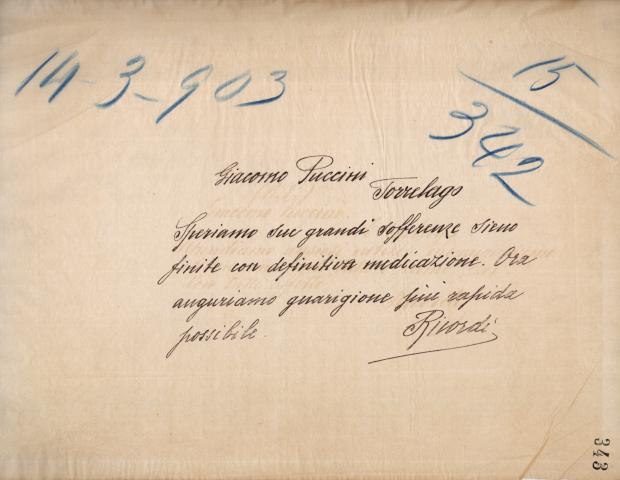 14-3-903
15/342
Giacomo Puccini
Torrelago
Speriamo sue grandi sofferenze sieno
finite con definitiva medicazione. Ora
auguriamo guarigione più rapida
possibile.
Ricordi
343